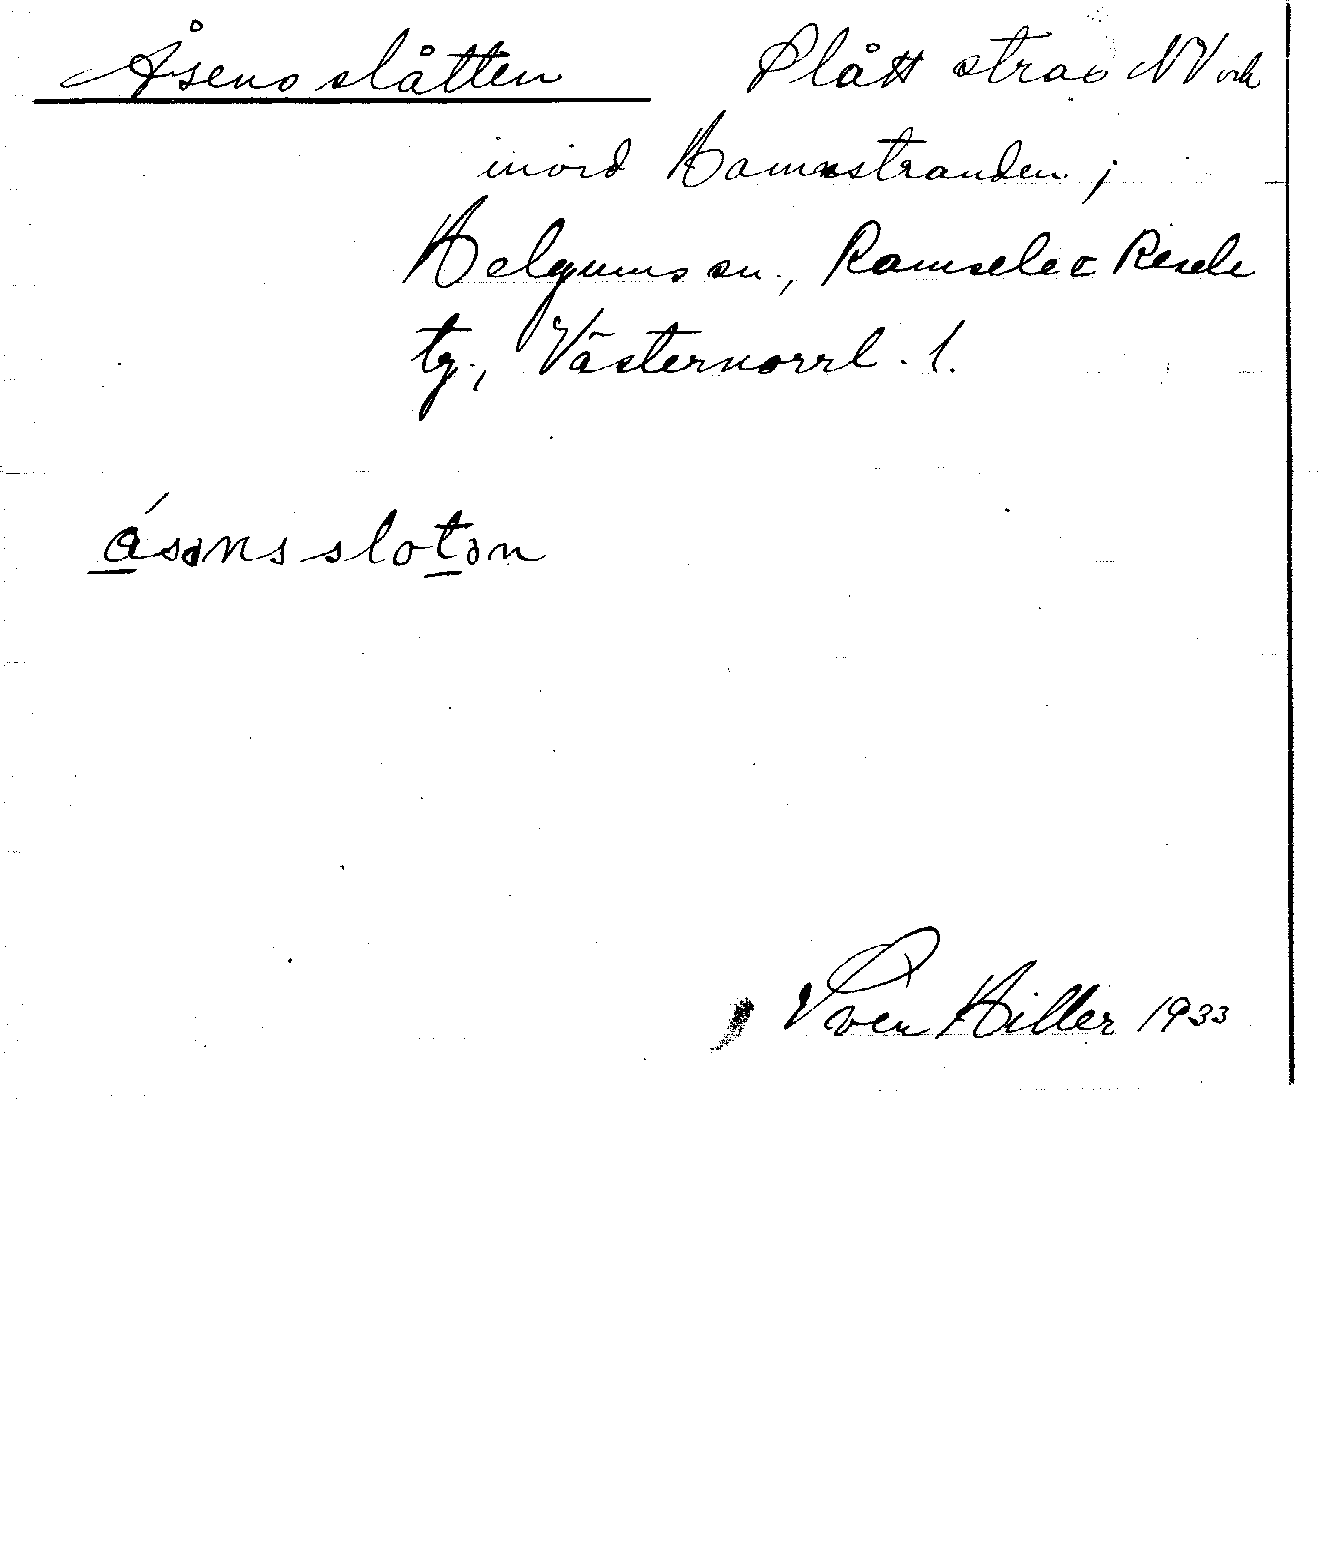 Åsensslåtten Slått strax NV och
inåt Hamnstranden;
Helgums sn., Ramsele o Resele
tg., Västernorrl. l.
åsənsslotən
Sven Hiller 1933